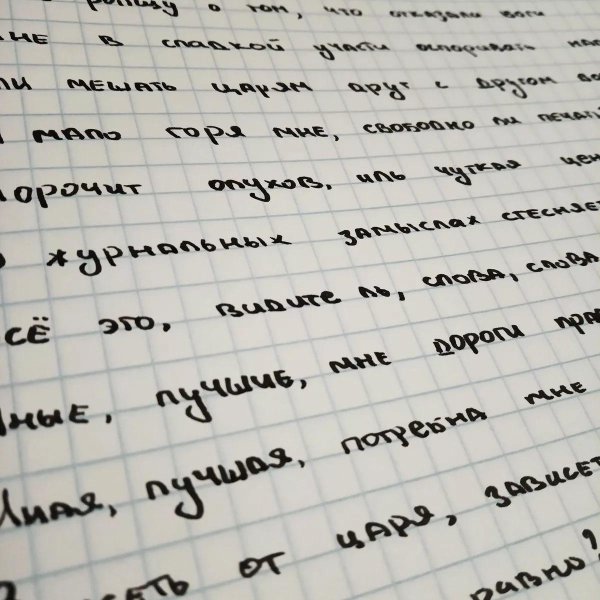 ропщу о том, что отказали боги
не в сладкой участи оспоривать нал
ли мешать царям друг с другом во
мало горя мне, свободно ли печат
орочит олухов, иль чуткая цен
журнальных замыслах стесняет
сё это, видите ль, слова, слова
ные, лучшие, мне дороги пра
Иная, лучшая, потребна мне
сеть от царя, зависет
равно?